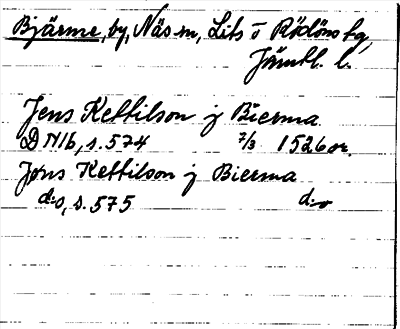 Bjärme, by, Näs sn, Lits o Rödöns tg,
Jämtl. l.
Jens Kettilson j Bierma
D N1b, s. 574 7/3 1526 or.
Jøns Kettilson j Bierma
d:o, s. 575 d:o